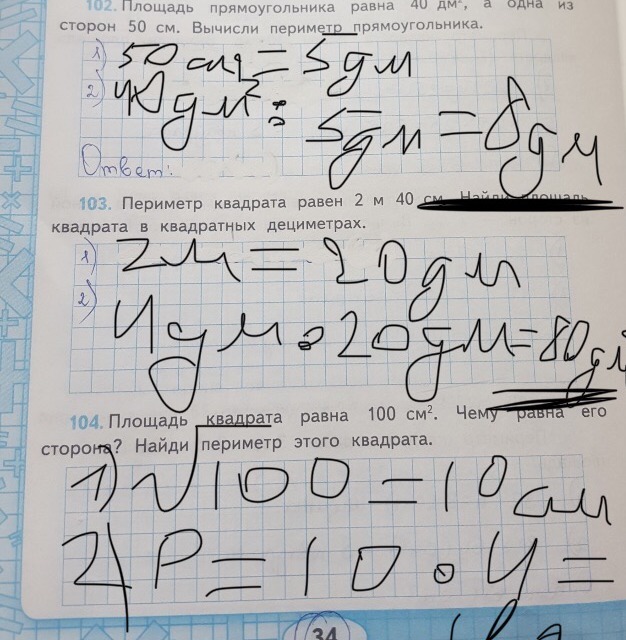 102. Площадь прямоугольника равна 40 дм², а одна из
сторон 50 см. Вычисли периметр прямоугольника.
1) 50 см = 5 дм
2) 40 дм² : 5 дм = 8 дм
Ответ:
103. Периметр квадрата равен 2 м 40 см. Найди площадь
квадрата в квадратных дециметрах.
1) 2м = 20 дм
2) 4 дм · 20 дм = 80 дм
104. Площадь квадрата равна 100 см². Чему равна его
сторона? Найди периметр этого квадрата.
1) √100 = 10 см
2) P = 10 · 4 =
34